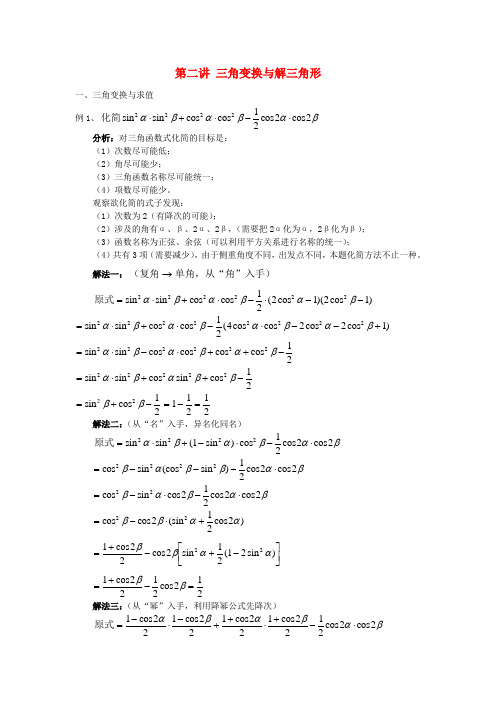 第二讲 三角变换与解三角形
一、三角变换与求值
例1、化简sin²α·sin²β+cos²α·cos²β−½cos2α·cos2β
分析：对三角函数式化简的目标是：
（1）次数尽可能低；
（2）角尽可能少；
（3）三角函数名称尽可能统一；
（4）项数尽可能少。
观察欲化简的式子发现：
（1）次数为2（有降次的可能）；
（2）涉及的角有α、β、2α、2β，（需要把2α化为α，2β化为β）；
（3）函数名称为正弦、余弦（可以利用平方关系进行名称的统一）；
（4）共有3项（需要减少），由于侧重角度不同，出发点不同，本题化简方法不止一种。
解法一：（复角→单角，从“角”入手）
原式=sin²α·sin²β+cosα·cos²β−½·(2cos²α−1)(2cos²β−1)
=sin²α·sin²β+cos²α·cos²β−½(4cos²α·cos²β−2cos²α−2cos²β+1)
=sin²α·sin²β−cos²α·cos²β+cos²α+cos²β−½
=sin²α·sin²β+cos²αsin²β+cos²β−½
=sin²β+cos²β−½=1−½=½
解法二：（从“名”入手，异名化同名）
原式=sin²α·sin²β+(1−sin²α)·cos²β−½cos2α·cos2β
=cos²β−sin²α(cos²β−sin²β)−½cos2α·cos2β
=cos²β−sin²α·cos2β−½cos2α·cos2β
=cos²β−cos2β·(sin²α+½cos2α)
=(1+cos2β)/2−cos2β[sin²α+½(1−2sin²α)]
=(1+cos2β)/2−½cos2β=½
解法三：（从“幂”入手，利用降幂公式先降次）
原式=(1−cos2α)/2·(1−cos2β)/2+(1+cos2α)/2·(1+cos2β)/2−½cos2α·cos2β